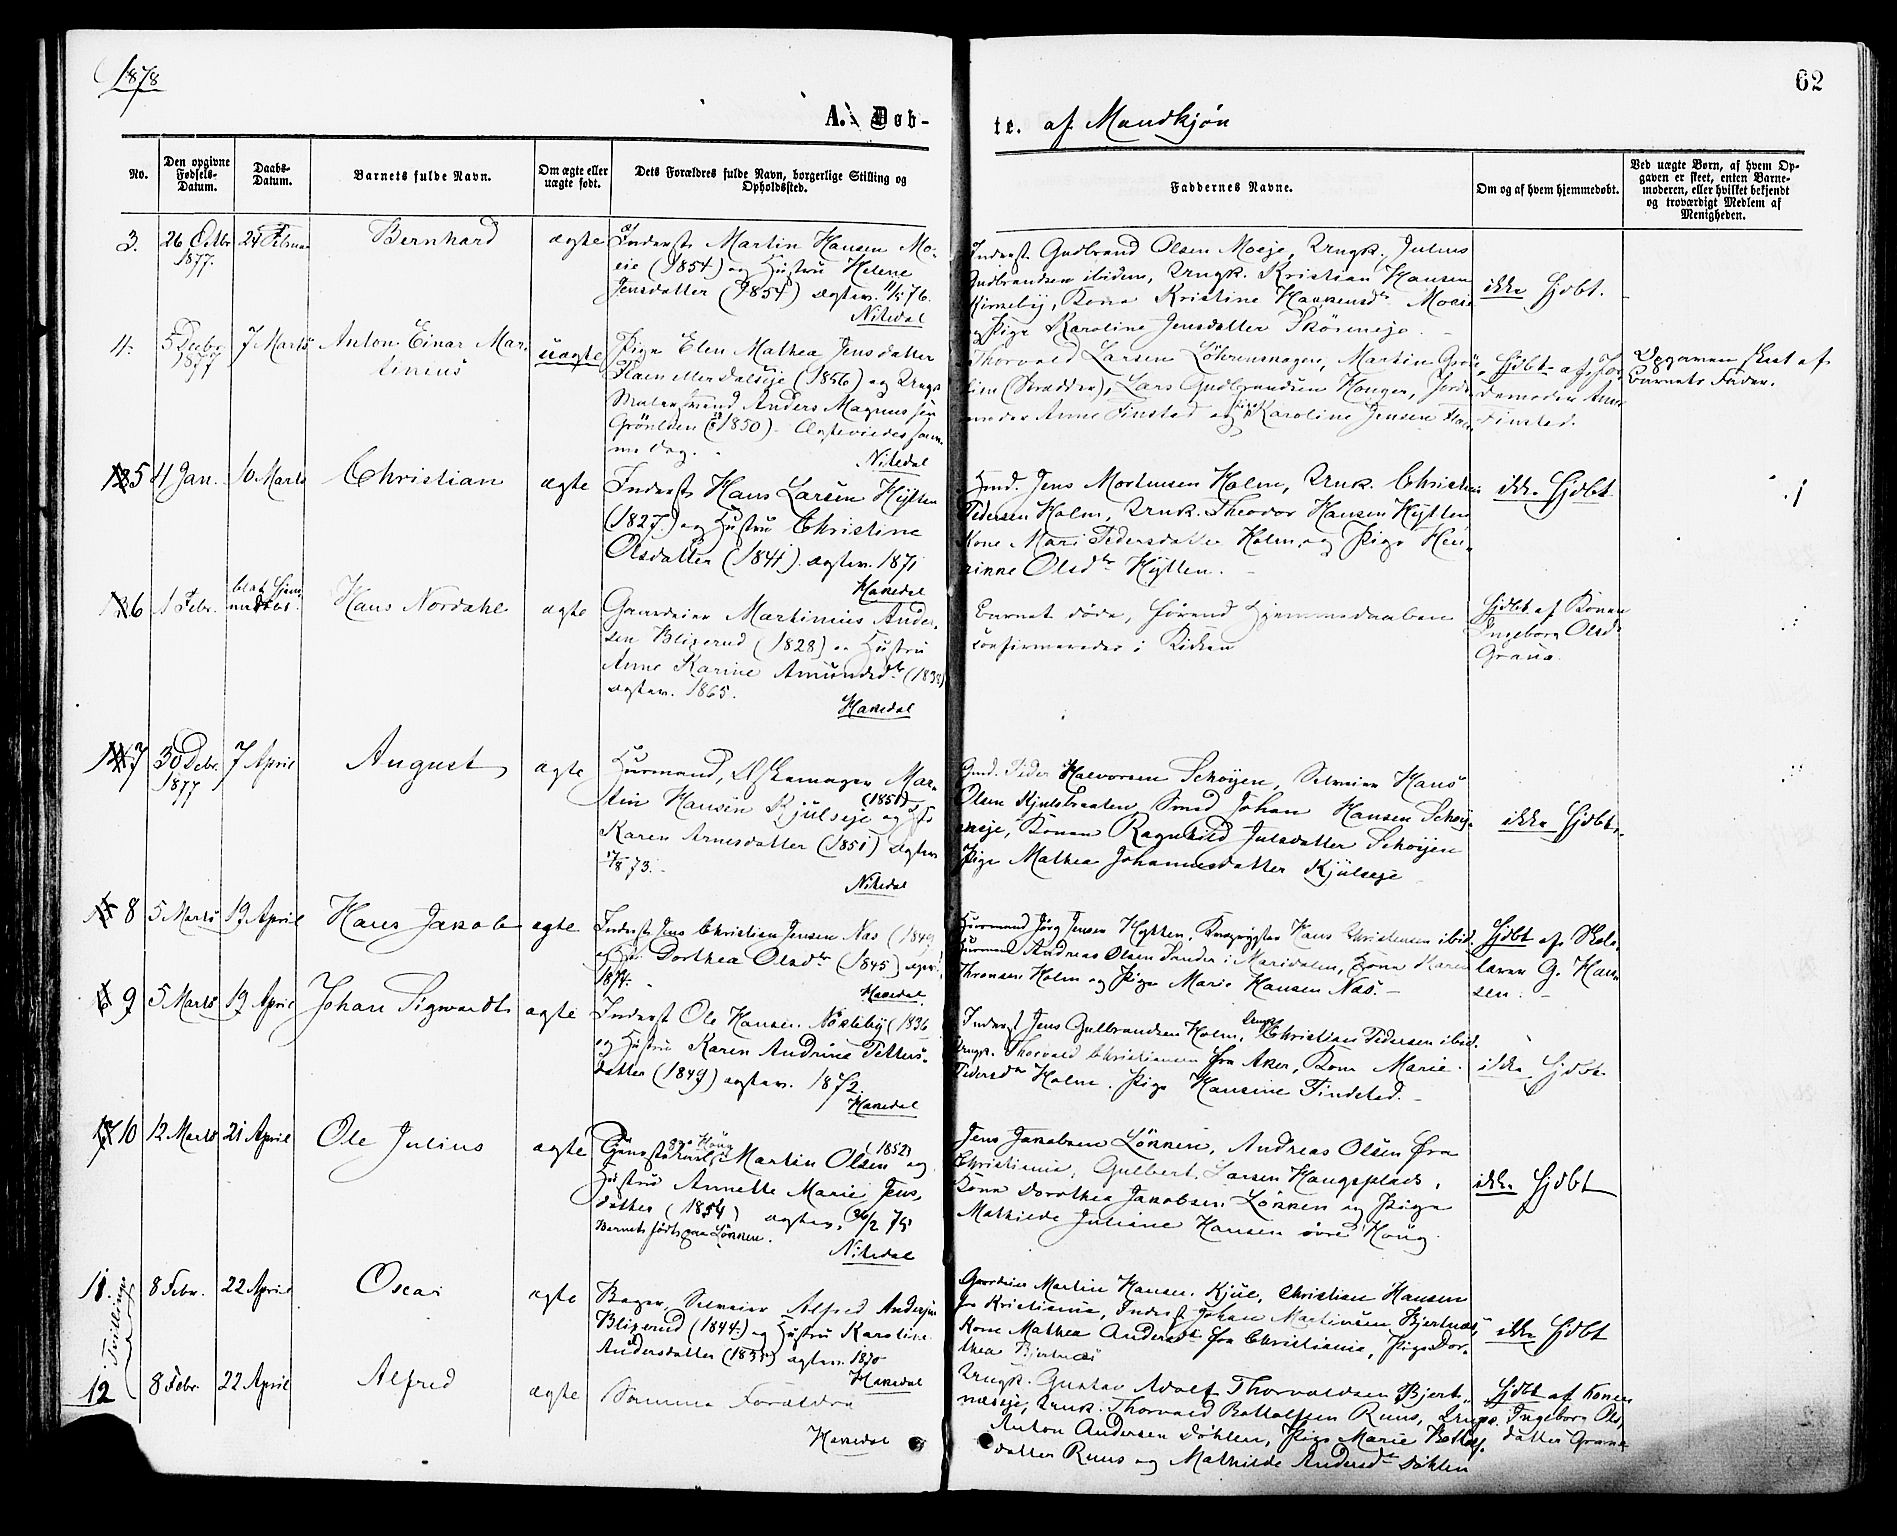 1878
62
A. Døb-
te. af Mandkjøn
No.
Den opgivne Fødsels-Datum.
Daabs-Datum.
Barnets fulde Navn.
Om ægte eller uægte født.
Dets Forældres fulde Navn, borgerlige Stilling og Opholdssted.
Faddernes Navne.
Om og af hvem hjemmedøbt.
Ved uægte Børn, af hvem Op-
gaven er skeet, enten Barne-
moderen, eller hvilket bekjendt
og troværdigt Medlem af
Menigheden.
3. 26 Octbr 1877. 24 Februar Bernhard ægte
Inderst Martin Hansen Mo-
eie (1854) og Hustru Helene
Jensdatter (1854) ægtev. 76.
Nitedal
Inderst Gudbrand Olsen Moeje, Ungk. Julius
Gudbrandsen ibidem, Ungk. Kristian Hansen
Kirkeby, Kone Kristine Moeie
og Pige Karoline Jensdatter
ikke Hjdbt.
4. 5 Decbr 1877 7 Marts Anton Einar Mar-
tinius uægte
Pige Elen Mathea Jensdatter
(1856) og Ungk.
Anders Magnussen
(1850)
Nitedal
Thorvald Larsen Martin
Lars Gudbrandsen Jord-
moder Anne Finstad og Pige Karoline Jensen
Hjdbt af Jor-
demoder Anne
Finsted.
Opgaven skeet af
Barnets Fader.
5 4 Jan. 10 Marts Christian ægte
Inderst Hans Larsen Hytten
(1827) og Hustru Christine
Olsdatter (1841) ægtev. 1871
Hakedal
Jens Mortensen Holm, Unk. Christian
Pedersen Holm, Unk. Theodor Hansen Hytten
Kone Mari Pedersdatter Holm og Pige Hen-
rinne Olsdtr Hytten.
ikke Hjdbt
6 1 Febr. blot Hjem-
medøbt. Hans Nordahl ægte
Gaardeier Martinius Ander-
sen Blixerud (1828) og Hustru
Anne Karine Amundsdtr (1838)
ægtev. 1865.
Hakedal
Barnet døde, førend Hjemmedaaben
confirmeredes i Kirken
Hjdbt af Konen
Ingeborg Olsdtr
Grana.
7 30 Debr. 1877 7 April August ægte
Huusmand, Mar-
tin Hansen Kjulseje (1851) og
Karen Arnesdatter (1851) ægtev.
73.
Nitedal
Gmd. Peder Halvorsen Schøyen, Selveier Hans
Olsen Kjulsbraaten, Smed Johan Hansen Schøy-
eneje, Konen Ragnhild Julsdatter Schøyen
Pige Mathea Johannesdatter Kjulseje
ikke Hjdbt.
8 5 Marts 19 April Hans Jakob ægte
Inderst Jens Christian Jensen Næs (1849
Dorthea Olsdtr (1845) ægtev.
1874.
Hakedal
Huusmand Jørg Jensen Hytten, Hans Christensen ibid.
Huusmand Andreas Olsen Sander i Maridalen, Kone Karen
Thronsen Holm og Pige Marie Hansen Næs.
Hjdbt af Skole-
lærer G. Han-
sen.
9 5 Marts 19 April Johan Sigwardt ægte
Inderst Ole Hansen Nøsteby (1836
og Hustru Karen Andrine Petters-
datter (1849) ægtev. 1872.
Hakedal
Inderst Jens Gulbrandsen Holm, Ungk. Christian Pedersen ibid.
Ungk. Thorvald Christiansen fra Aker, Kone Marie
Pedersdtr Holm. Pige Hansine Findsted.
ikke Hjdbt
10 12 Marts 21 April Ole Julius ægte
Tjenestekarl Martin Olsen (1852) og
Hustru Annette Marie Jens-
datter (1854) ægtev. 26/2 75
Barnet født paa Lønnen.
Nitedal
Jens Jakobsen Lønnen, Andreas Olsen fra
Christiania, Gulbert Larsen Haugsplads,
Kone Dorothea Jakobsen Lønnen og Pige
Mathilde Juliane Hansen øvre Houg
ikke Hjdbt
11. Tvillinger 8 Febr. 22 April Oscar ægte
Bager, Selveier Alfred Andersen
Blixerud (1844) og Hustru Karoline
Andersdatter ægtev. 1870
Hakedal
Gaardeier Martin Hansen Kjul, Christian Hansen
fra Kristiania, Inderst Johan Martinsen Bjertnæs,
Kone Mathea Andersdtr fra Christiania, Pige Dor-
thea Bjertnæs
ikke Hjdbt
12 8 Febr. 22 April Alfred ægte
Samme Forældre
Hakedal
Ungk. Gustav Adolf Thorvaldsen Bjert-
næseje, Unk. Thorvald Bottolfsen Ruus, Ungk.
Anton Andersen Døhlen, Pige Marie Bottolfs-
datter Ruus og Mathilde Andersdtr Døhlen
Hjdbt af Konen
Ingeborg Ols-
datter Grana